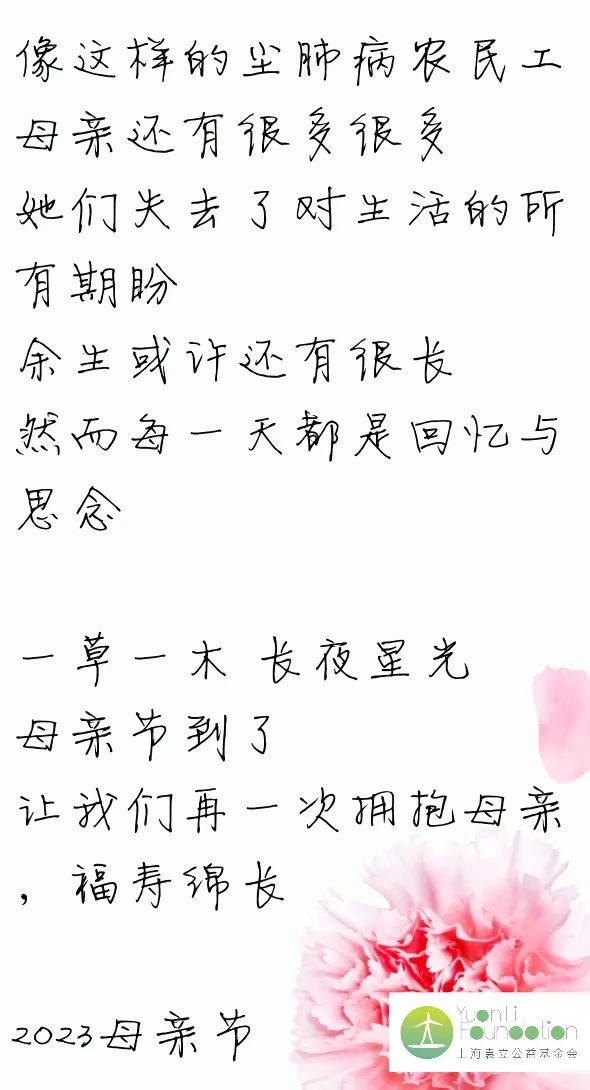 像这样的尘肺病农民工
母亲还有很多很多
她们失去了对生活的所
有期盼
余生或许还有很长
然而每一天都是回忆与
思念
一草一木 长夜星光
母亲节到了
让我们再一次拥抱母亲
，福寿绵长
2023母亲节
YuanLi
Foundation
上海袁立公益基金会